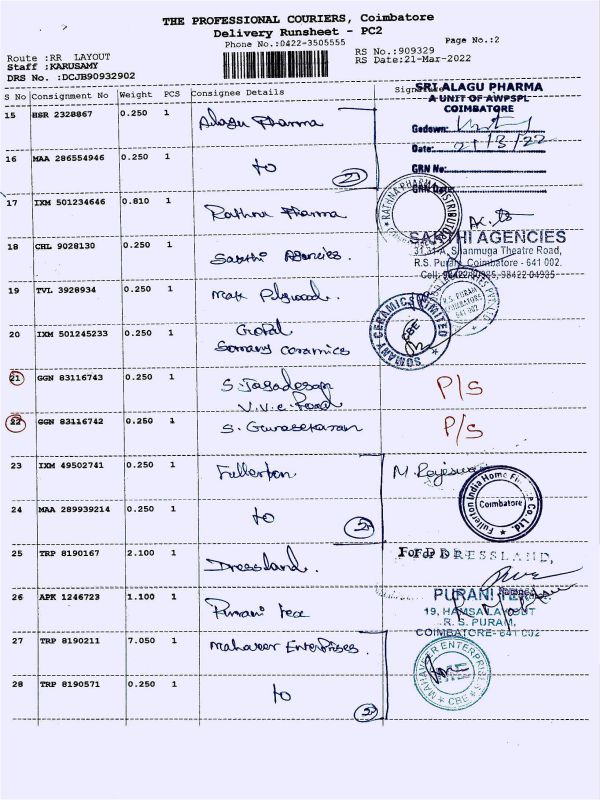 THE PROFESSIONAL COURIERS, Coimbatore
Delivery Runsheet - PC2
Phone No.:0422-3505555
Page No.:2
Route :RR LAYOUT
RS No.:909329
Staff :KARUSAMY
RS Date:21-Mar-2022
DRS No. :DCJB90932902
S No Consignment No Weight PCS Consignee Details
SRI ALAGU PHARMA
A UNIT OF AWPSPL
COIMBATORE
Godown:
Date: 21/3/22
GRN No:
GRN Date:
15 HSR 2328867 0.250 1 Alagu Pharma
16 MAA 286554946 0.250 1 to
17 IXM 501234646 0.810 1 Rathna Pharma
RATHNA PHARMA DISTRIBUTORS
18 CHL 9028130 0.250 1 Sakthi Agencies.
SAKTHI AGENCIES
31,31-A, Shanmuga Theatre Road,
R.S. Puram, Coimbatore - 641 002.
19 TVL 3928934 0.250 1
R.S. PURAM
20 IXM 501245233 0.250 1
Somany ceramics
SOMANY CERAMICS LIMITED
CBE
21 GGN 83116743 0.250 1 S. Jagadesan P/S
V.V.C. Road
22 GGN 83116742 0.250 1 S. Gunasekaran P/S
23 IXM 49502741 0.250 1 Fullerton
Fullerton India Home Finance Co. Ltd.
Coimbatore
24 MAA 289939214 0.250 1 to
25 TRP 8190167 2.100 1 Dressland.
For DRESSLAND,
26 APK 1246723 1.100 1 Purani tex
PURANI
R. S. PURAM,
COIMBATORE-641 002
27 TRP 8190211 7.050 1 Mahaveer Enterprises.
MAHAVEER ENTERPRISES
CBE
28 TRP 8190571 0.250 1 to